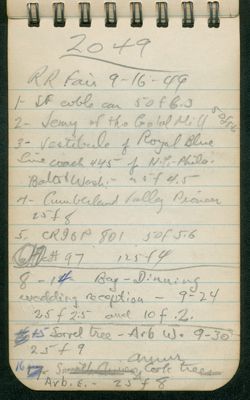 2049
RR Fair 9-16-49
1- SF cable car 50 f 6.3
2- Jenny of the Coptal Mill 50 f 5.6
3- Vestibule of Royal Blue
line coach 445 of N.Y.-Phila.
Balt & Wash. - 25 f 4.5
4- Cumberland Valley Pioneer
25 f 8
5. CRI&P 801 50 f 5.6
6 # 97 125 f 4
8 - 14 Bag - Dinning
wedding reception - 9-24
25 f 2.5 and 10 f 2.
15 Sorrel tree - Arb W. 9-30
25 f 9
16 Cork trees
Arb. E. - 25 f 8